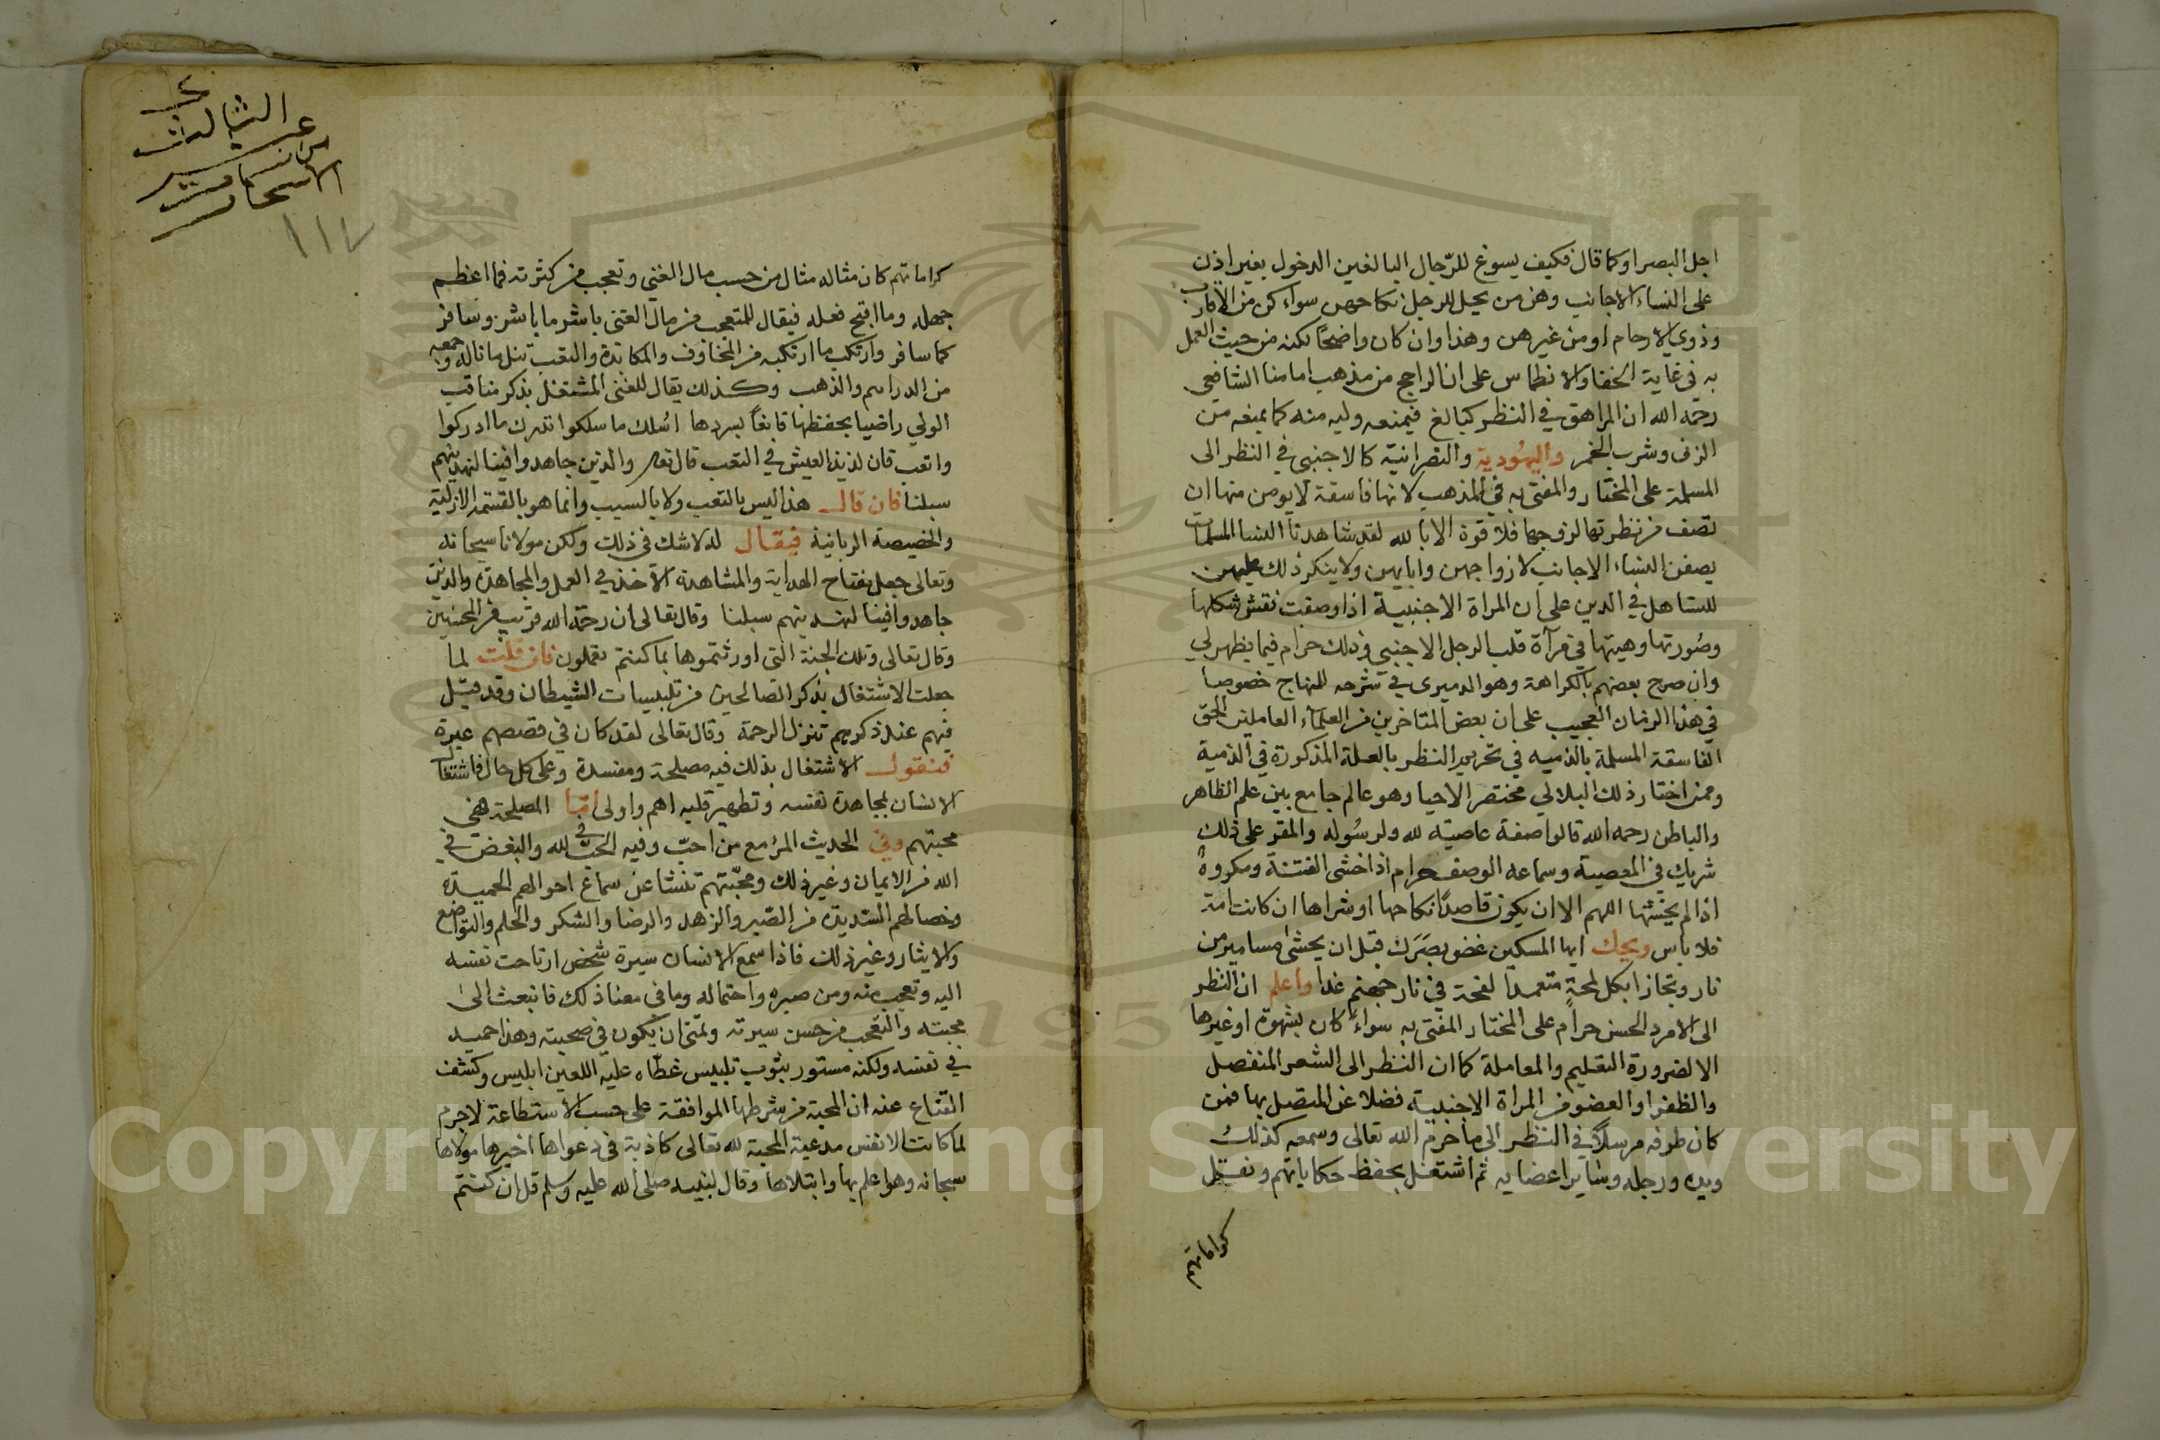 اجل البصر او كما قال فكيف يسوغ للرّجال البالغين الدخول بغير اذن
على النساء الاجانب وهن من يحل للرجل نكاحهن سواء كن من الاقارب
وذوي الارحام او من غيرهن وهذا وان كان واضحا لكنه من حيث العمل
به في غاية الخفا والانطماس على ان الراجح من مذهب امامنا الشافعي
رحمه الله ان المراهق في النظر كبالغ فيمنعه وليه منه كما يمنعه من
الزنى وشرب الخمر واليهُودية والنصرانية كالاجنبي في النظر الى
المسلمة على المختار والمفتى به في المذهب لانها فاسقة لا يومن منها ان
تصف من نظرتها لزوجها فلا قوة الا بالله لقد شاهدنا النسا المسلمات
يصفن النساء الاجانب لازواجهن وابايهن ولا ينكر ذلك عليهن
للتساهل في الدين على ان المراة الاجنبية اذا وصفت نقش شكلها
وصُورتها وهيتها في مرآة قلب الرجل الاجنبي وذلك حرام فيما يظهر لي
وان صرح بعضهم بالكراهة وهو الدميري في شرحه للمنهاج خصوصا
في هذا الزمان العجيب على ان بعض المتاخرين من العلماء العاملين الحق
الفاسقة المسلمة بالذميه في تحريم النظر بالعلة المذكورة في الذمية
وممن اختار ذلك البلالي مختصر الاحيا وهو عالم جامع بين علم الظاهر
والباطن رحمه الله قالوا صفة عاصية لله ولرسُوله والمقر على ذلك
شريك في المعصية وسماعه الوصف حرام اذا خشى الفتنة ومكروه
اذا لم يخشها اللهم الا ان يكون قاصدًا نكاحها او شراها ان كانت امة
فلا باس ويحك ايها المسكين غض بصَرَك قبل ان يحشى مسامير من
نار وتجازا بكل لمحةٍ متعمدًا لفحة في نار جهنم غدا واعلم ان النظر
الى الامرد الحسن حرام على المختار المفتى به سواءً كان بشهوة او غيرها
الا لضرورة التعليم والمعاملة كما ان النظر الى الشعر المنفصل
والظفر او العضو من المراة الاجنبية فضلا عن المتصل بها فمن
كان طرفه مرسلاً في النظر الى ما حرم الله تعالى وسمعه كذلك
ويده ورجله وساير اعضايه ثم اشتغل بحفظ حكاياتهم ونقل
كراماتهم
الثالث
عشر
من نسمات
الاسحار
١١٧
كراماتهم كان مثاله مثال من حسب مال الغني وتعجب من كثرته فما اعظم
جهله وما اقبح فعله فيقال للمتعجب من مال الغنى باشر ما باشر وسافر
كما سافر وارتكب ما ارتكبه من المخاوف والمكابدة والتعب تنل ما ناله وجمعه
من الدراهم والذهب وكذلك يقال للغنى المشتغل بذكر مناقب
الولي راضيا بحفظها قانعًا بسردها اسُلك ما سلكوا تدرك ما ادركوا
واتعب فان لذيذ العيش في التعب قال تعالى والذين جاهدوا فينا لنهدينهم
سبلنا فان قال هذا ليس بالتعب ولا بالسبب وانما هو بالقسمة الازلية
والخصيصة الربانية فيقال له لا شك في ذلك ولكن مولانا سبحانه
وتعالى جعل مفتاح الهداية والمشاهدة الاخذ في العمل والمجاهدة والذين
جاهدوا فينا لنهدينهم سبلنا وقال تعالى ان رحمة الله قريب من المحسنين
وقال تعالى وتلك الجنة التى اورثتموها بما كنتم تعملون فان قلت لما
جعلت الاشتغال بذكر الصالحين من تلبيسات الشيطان وقد قيل
فيهم عند ذكرهم تنزل الرحمة وقال تعالى لقد كان في قصصهم عبرة
فنقول الاشتغال بذلك فيه مصلحة ومفسدة وعلى كل حال فاشتغال
الانسان بمجاهدة نفسه وتطهير قلبه اهم واولى امّا المصلحة فهي
محبتهم وفي الحديث المرء مع من احبّ وفيه الحبّ في لله والبغض في
الله من الايمان وغير ذلك ومحبّتهم تنشا عن سماع احوالهم الحميدة
وخصالهم السّديدة من الصّبر والزهد والرضا والشكر والحلم والتواضع
والايثار وغير ذلك فاذا سمع الانسان سيرة شخص ارتاحت نفسه
اليه وتعجب منه ومن صبره واحتماله وما في معنا ذلك فانبعث الى
محبته والتعجب من حسن سيرته وتمنى ان يكون في صحبته وهذا حميد
في نفسه ولكنه مستور بثوب تلبيس غطّاه عليه اللعين ابليس وكشف
القناع عنه ان المحبة من شرطها الموافقة على حسب الاستطاعة لاجرم
لما كانت الانفس مدعية المحبة لله تعالى كاذبة في دعواها اخبرها مولاها
سبحانه وهو اعلم بها وابتلاها وقال لنبيه صلى الله عليه وسلم قل ان كنتم
1957
Copyright © King Saud University